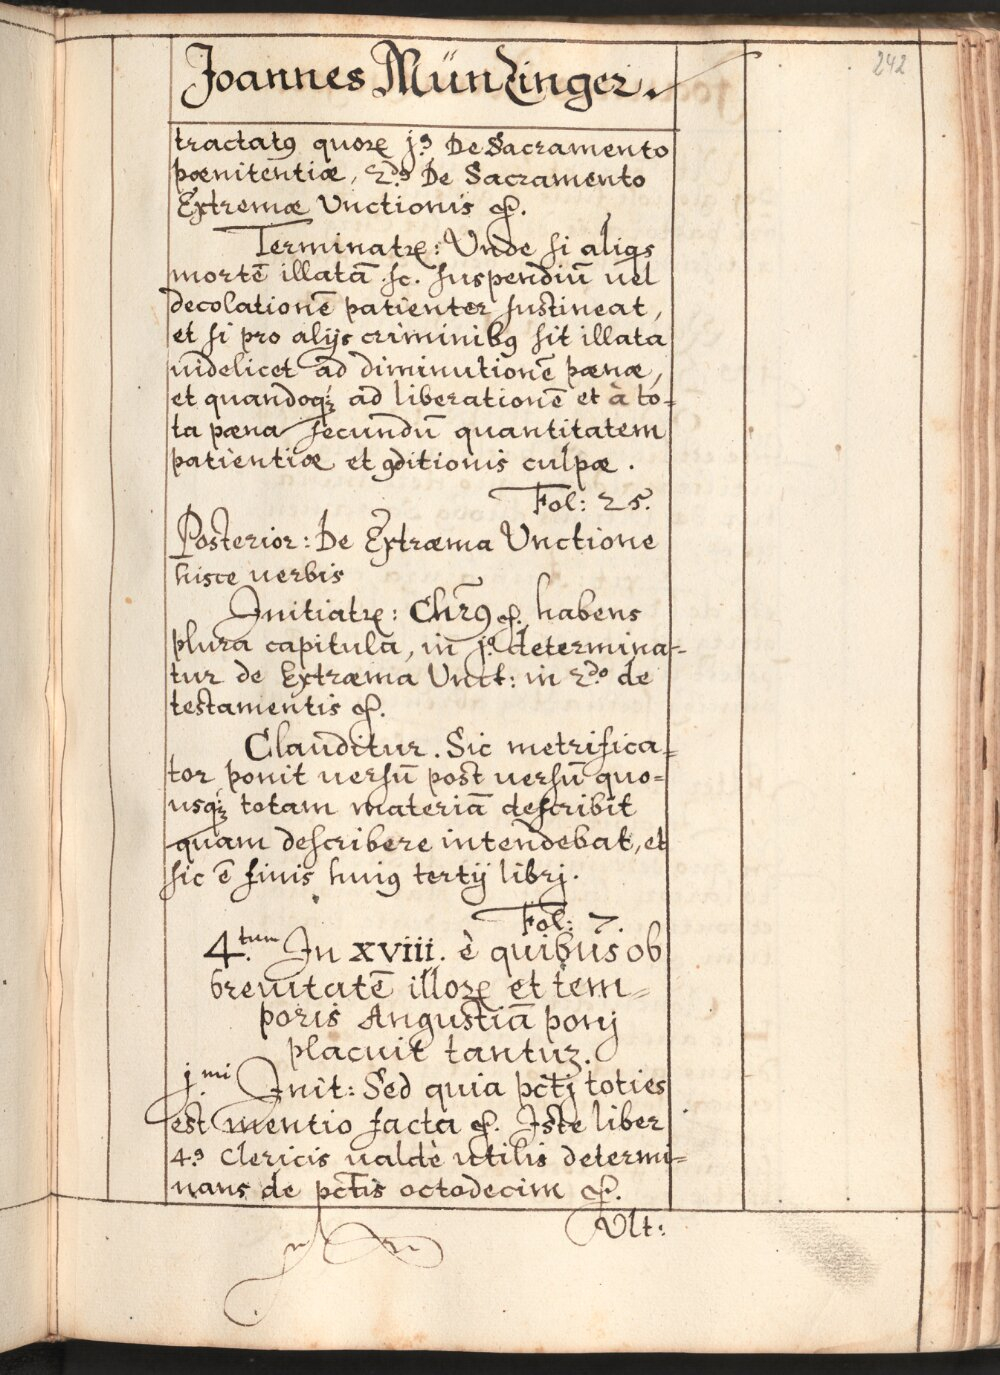 242
Joannes Münzinger.
tractatꝰ quoꝝ jꝰ De Sacramento
pœnitentiæ, 2.dꝰ De Sacramento
Extremæ Unctionis &.
Terminatꝝ: Unde si aliqs
mortē illatā sc. suspendiū uel
decolationē patienter sustineat,
et si pro alijs criminibꝰ sit illata
uidelicet ad diminutionē pænæ,
et quandoqꝫ ad liberationē et à to=
ta pæna secundū quantitatem
patientiæ et ꝯditionis culpæ.
Fol: 25.
Posterior: De Extræma Unctione
hisce uerbis
Initiatꝝ: Chrꝰ̄ &. habens
plura capitula, in jº determina=
tur de Extræma Unct: in 2.do de
testamentis &.
Clauditur. Sic metrifica=
tor ponit uersū post uersū quo=
usqꝫ totam materiā describit
quam describere intendebat, et
sic ē finis huiꝰ tertij librj.
Fol: 7.
4.tum In XVIII. è quibus ob
breuitatē illoꝝ et tem=
poris Angustiā ponj
placuit tantuꝫ.
j.mi Init: Sed quia pctj toties
est mentio facta &. Iste liber
4.ꝰ Clericis ualdè utilis determi=
nans de pctis octodecim &.
Ult: